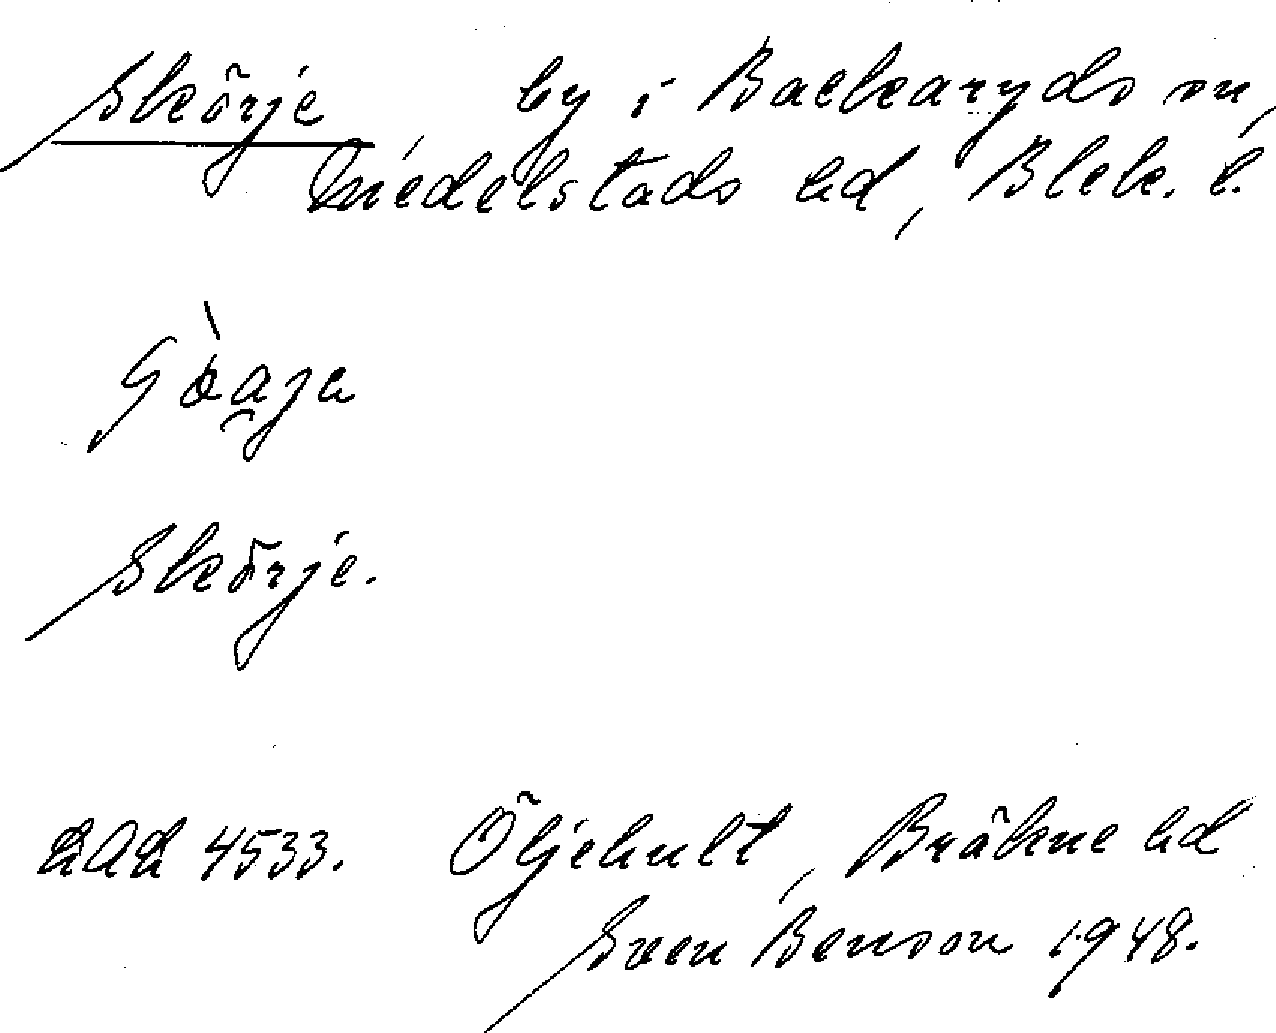 Skörje by i Backaryds sn,
Medelstads hd, Blek. l.
Skörje.
LAL 4533. Öljehult, Bräkne hd
Sven Benson 1948.